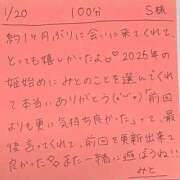 1/20 100分 S様
約1ヶ月ぶりに会いに来てくれて、
とっても嬉しかったよ♡ 2025年の
姫始めにみとのことを選んでくれ
て本当にありがとう(o'ω'o)「前回
よりも更に気持ち良かた」って、褒
め言ってくれて、前回を更新出来て
良かった♡また一緒に遊ぼうね!!
みと